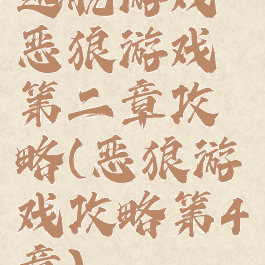 逃脱游戏
恶狼游戏
第二章攻
略(恶狼游
戏攻略第4
章)